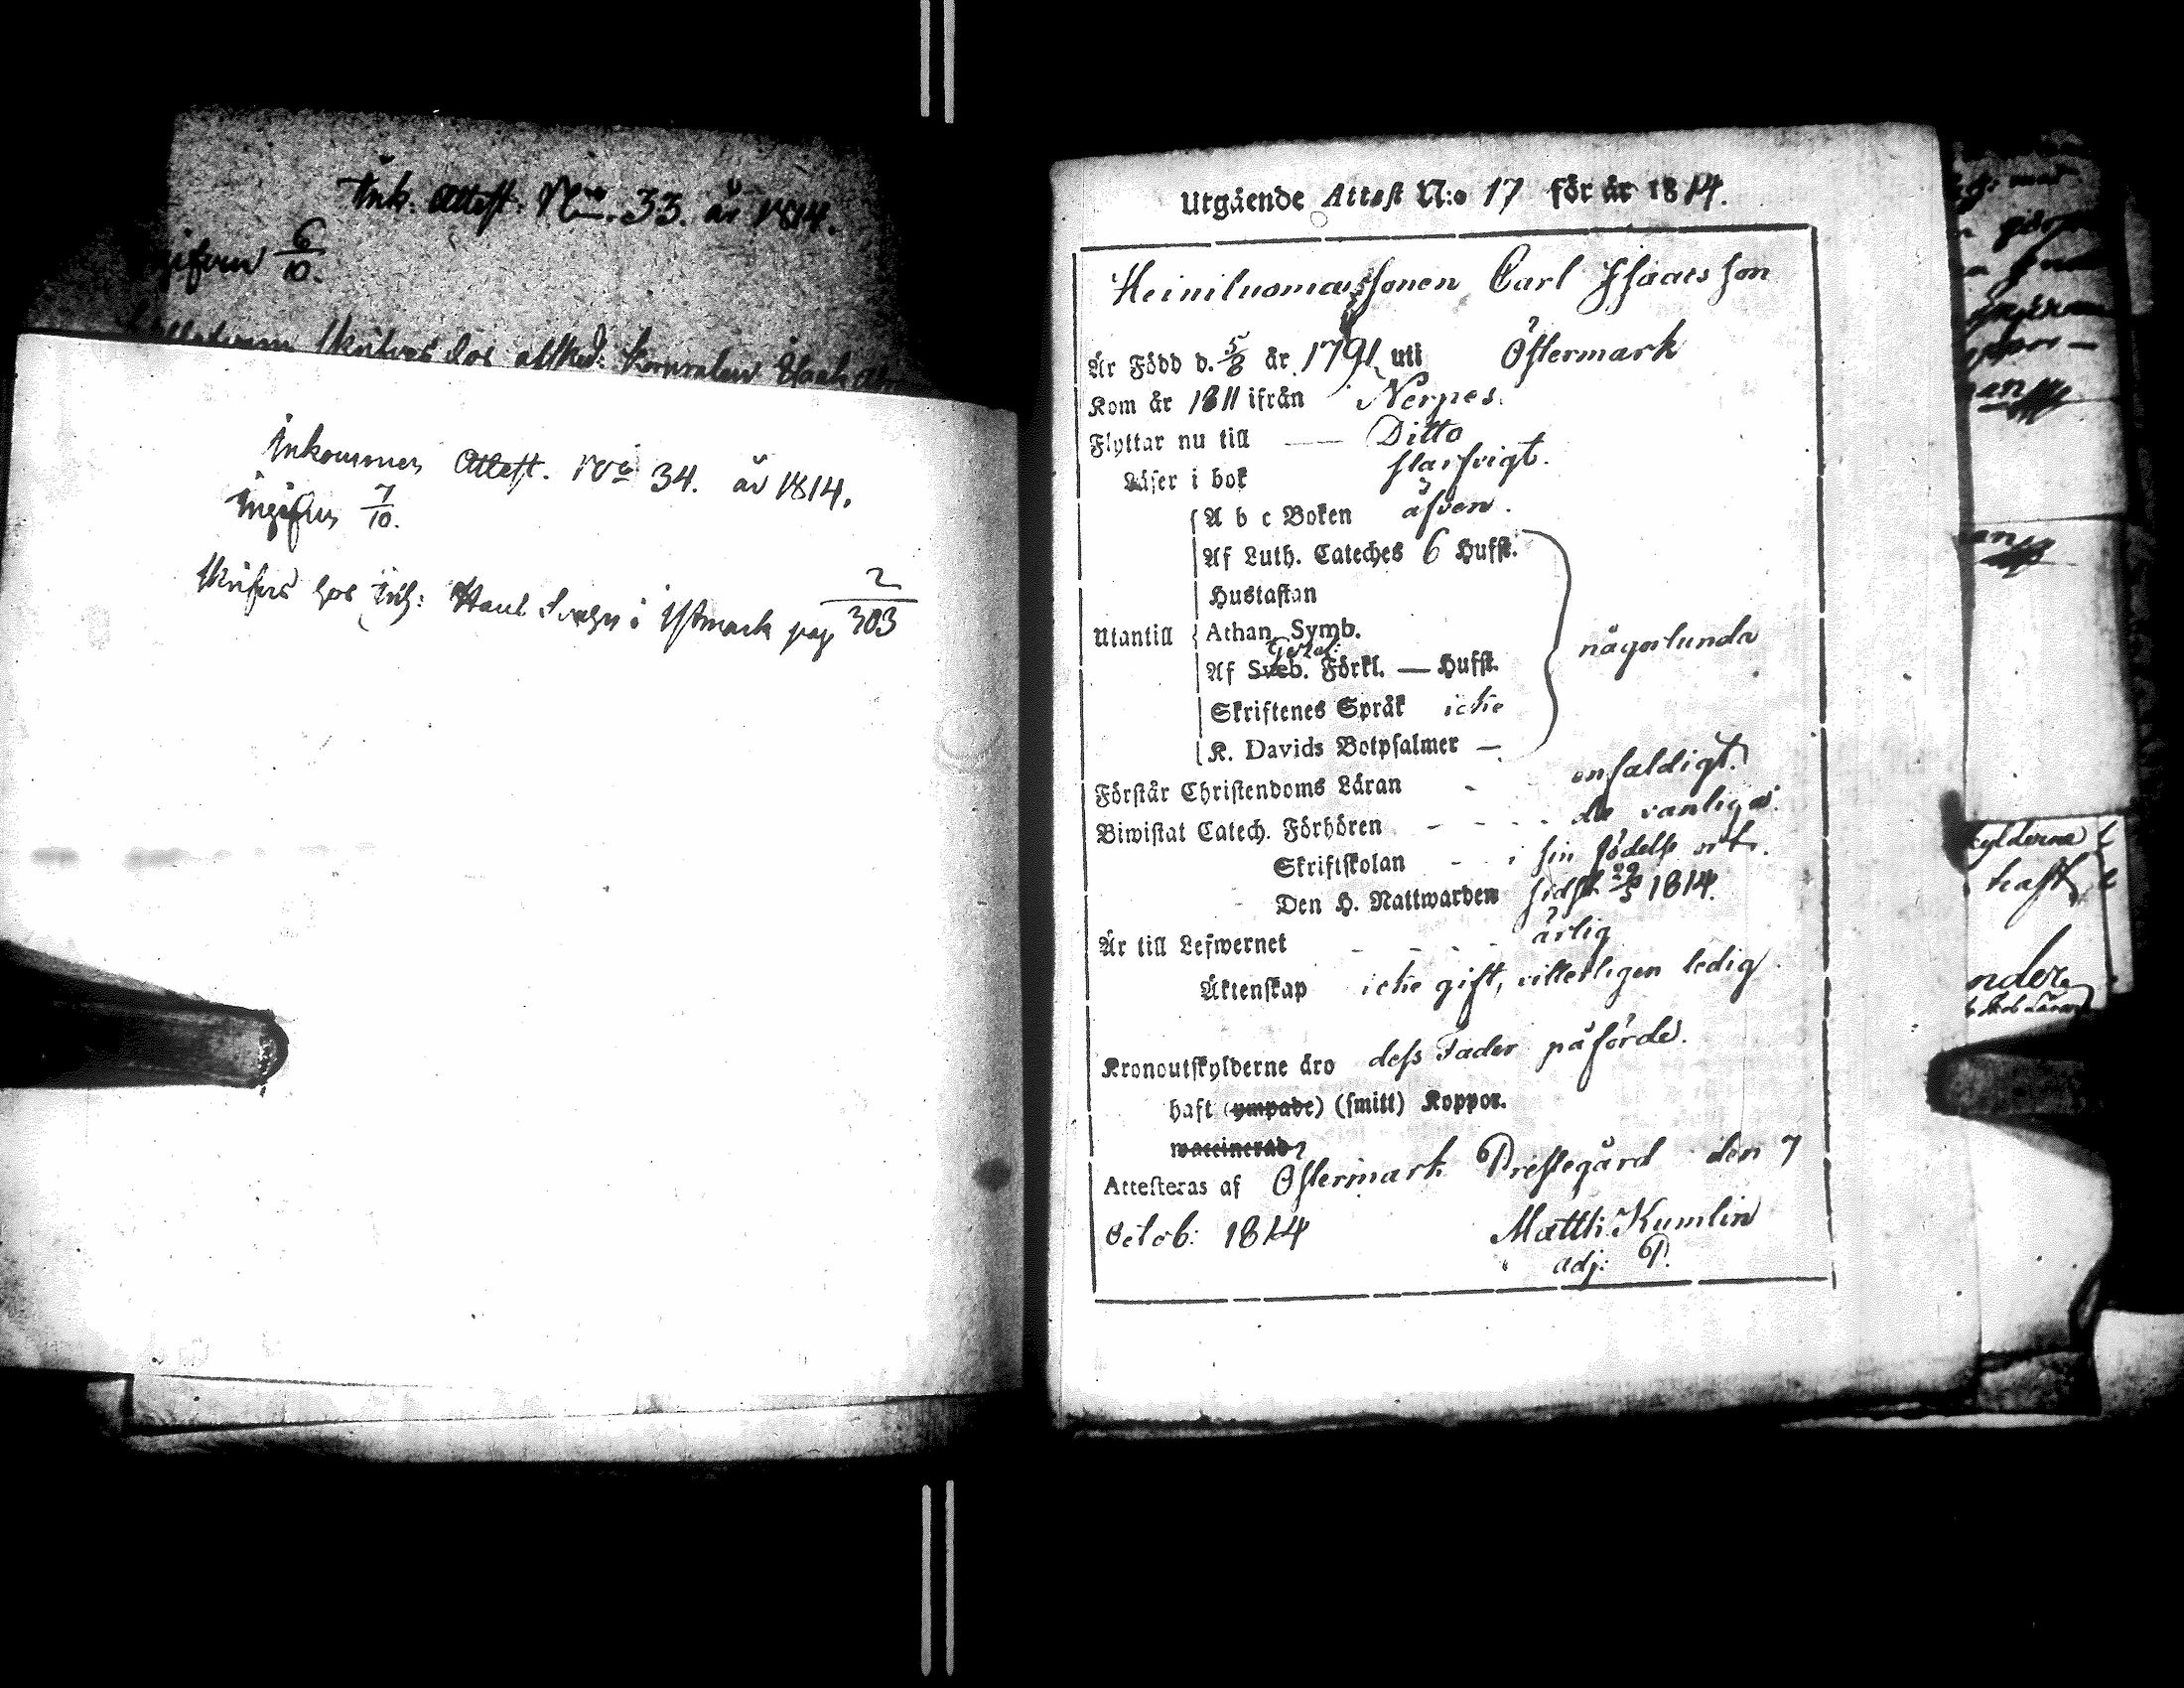 Ink. Attest. Nro. 33. år 1814.
6/10.
skrifves hos
Inkommen Attest. No 34. år 1814.
Ingifven 7/10.
skrifves hos Inh: i Ostmark pag 2/303
Utgående Attest N:o 17 för år 1814.
Heiniluoma Sonen Carl Isaacs son
Är Född d. 5/8 år 1791 uti Östermark
Kom år 1811 ifrån Nerpes.
Flyttar nu till — Ditto
Läser i bok slarfvigt.
A b c Boken äfven.
Af Luth. Cateches 6 Hufst.
Hustaflan
Utantill Athan. Symb. någorlunda
Af Sveb. Förkl. — Hufst.
Skriftenes Språk icke
K. Davids Botpsalmer —
Förstår Christendoms Läran - enfaldigt.
Biwistat Catech. Förhören - - - - de vanliga.
Skriftskolan - i sin födelse ort.
Den H. Nattwarden sidst 29/5 1814.
Är till Lefwernet - - - - ärlig
Äktenskap icke gift, villerligen ledig.
Kronoutskylderne äro dess Fader påförde.
haft (ympade) (smitt) Koppor.
waccinerad
Attesteras af Östermark Prestegård den 7
Octob: 1814 Matth: Kumlin
adj: P.
kylderne
haft